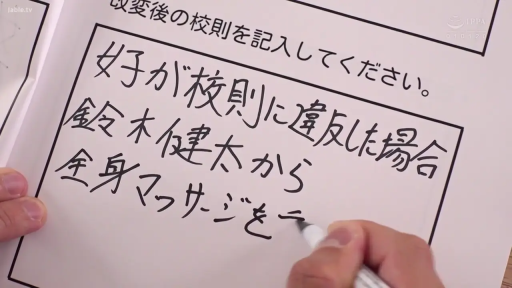 改変後の校則を記入してください。
女子が校則に違反した場合
鈴木健太から
全身マッサージを